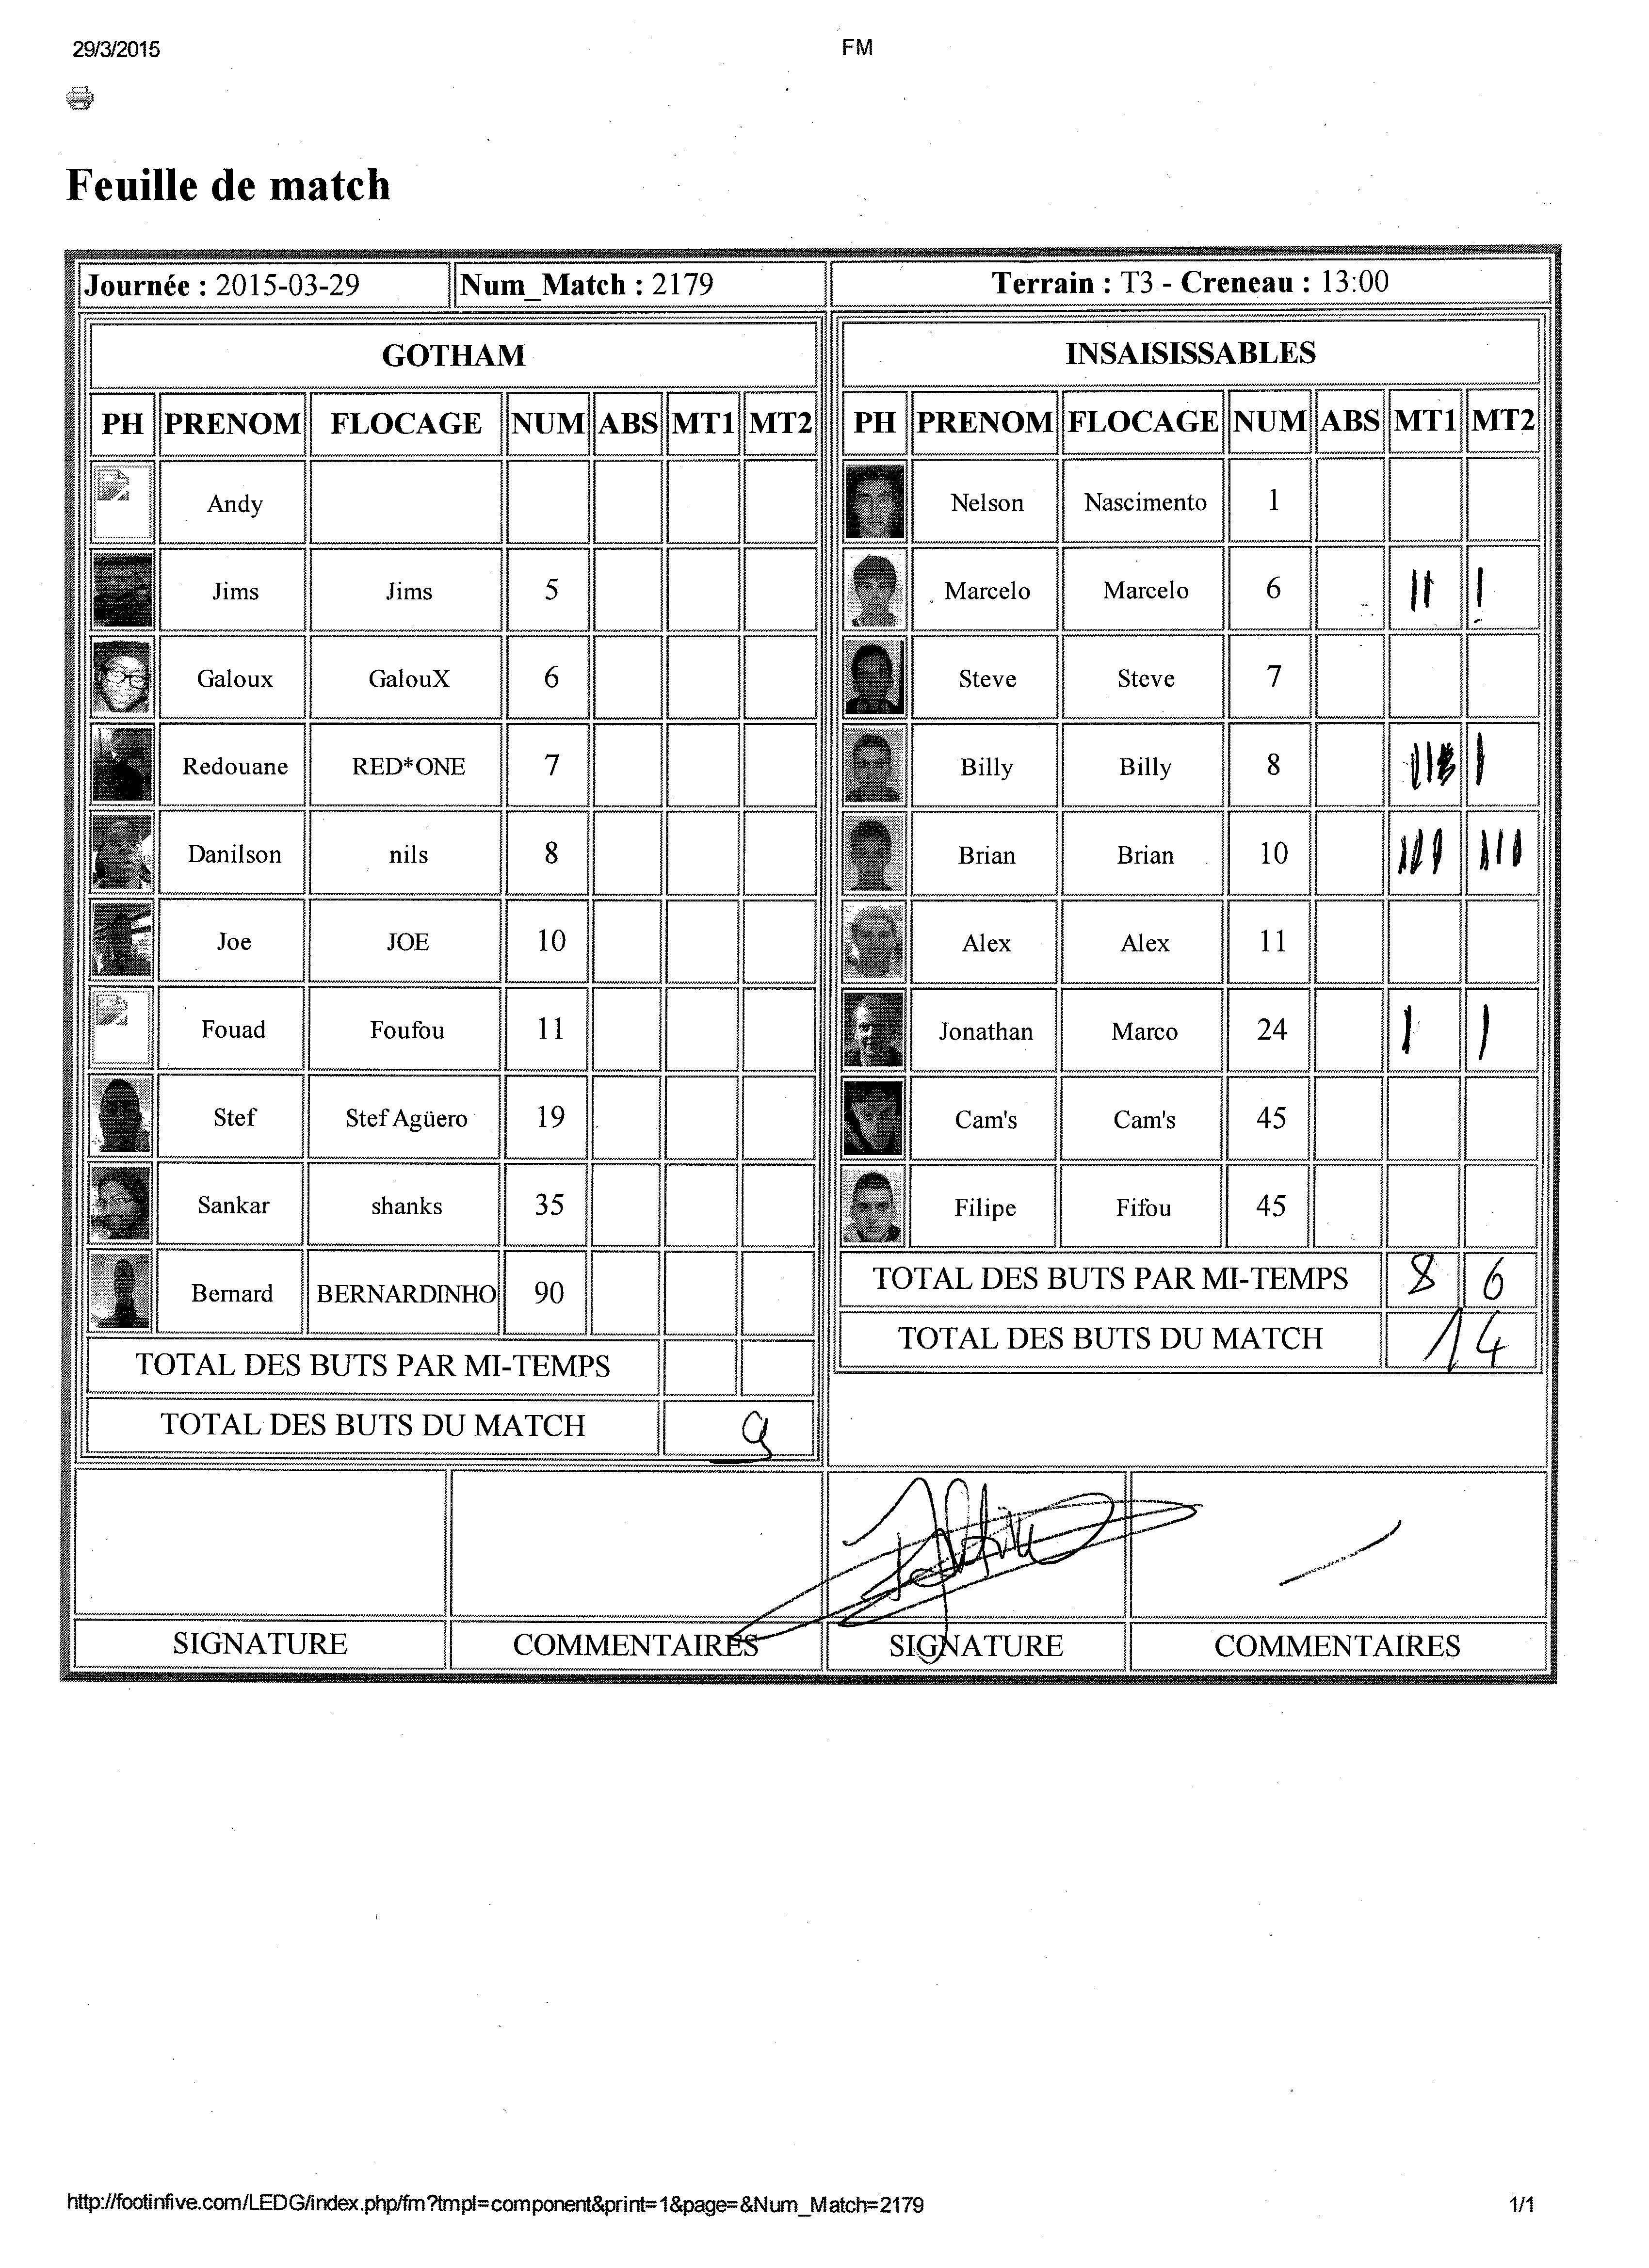 29/3/2015 FM
Feuille de match
Journée : 2015-03-29 Num_Match : 2179 Terrain : T3 - Creneau : 13:00
GOTHAM
PH PRENOM FLOCAGE NUM ABS MT1 MT2
Andy
Jims Jims 5
Galoux GalouX 6
Redouane RED*ONE 7
Danilson nils 8
Joe JOE 10
Fouad Foufou 11
Stef Stef Agüero 19
Sankar shanks 35
Bernard BERNARDINHO 90
TOTAL DES BUTS PAR MI-TEMPS
TOTAL DES BUTS DU MATCH 9
INSAISISSABLES
PH PRENOM FLOCAGE NUM ABS MT1 MT2
Nelson Nascimento 1
Marcelo Marcelo 6 || |
Steve Steve 7
Billy Billy 8 |
Brian Brian 10 ||| |||
Alex Alex 11
Jonathan Marco 24 | |
Cam's Cam's 45
Filipe Fifou 45
TOTAL DES BUTS PAR MI-TEMPS 8 6
TOTAL DES BUTS DU MATCH 14
SIGNATURE COMMENTAIRES SIGNATURE COMMENTAIRES
http://footinfive.com/LEDG/index.php/fm?tmpl=component&print=1&page=&Num_Match=2179 1/1